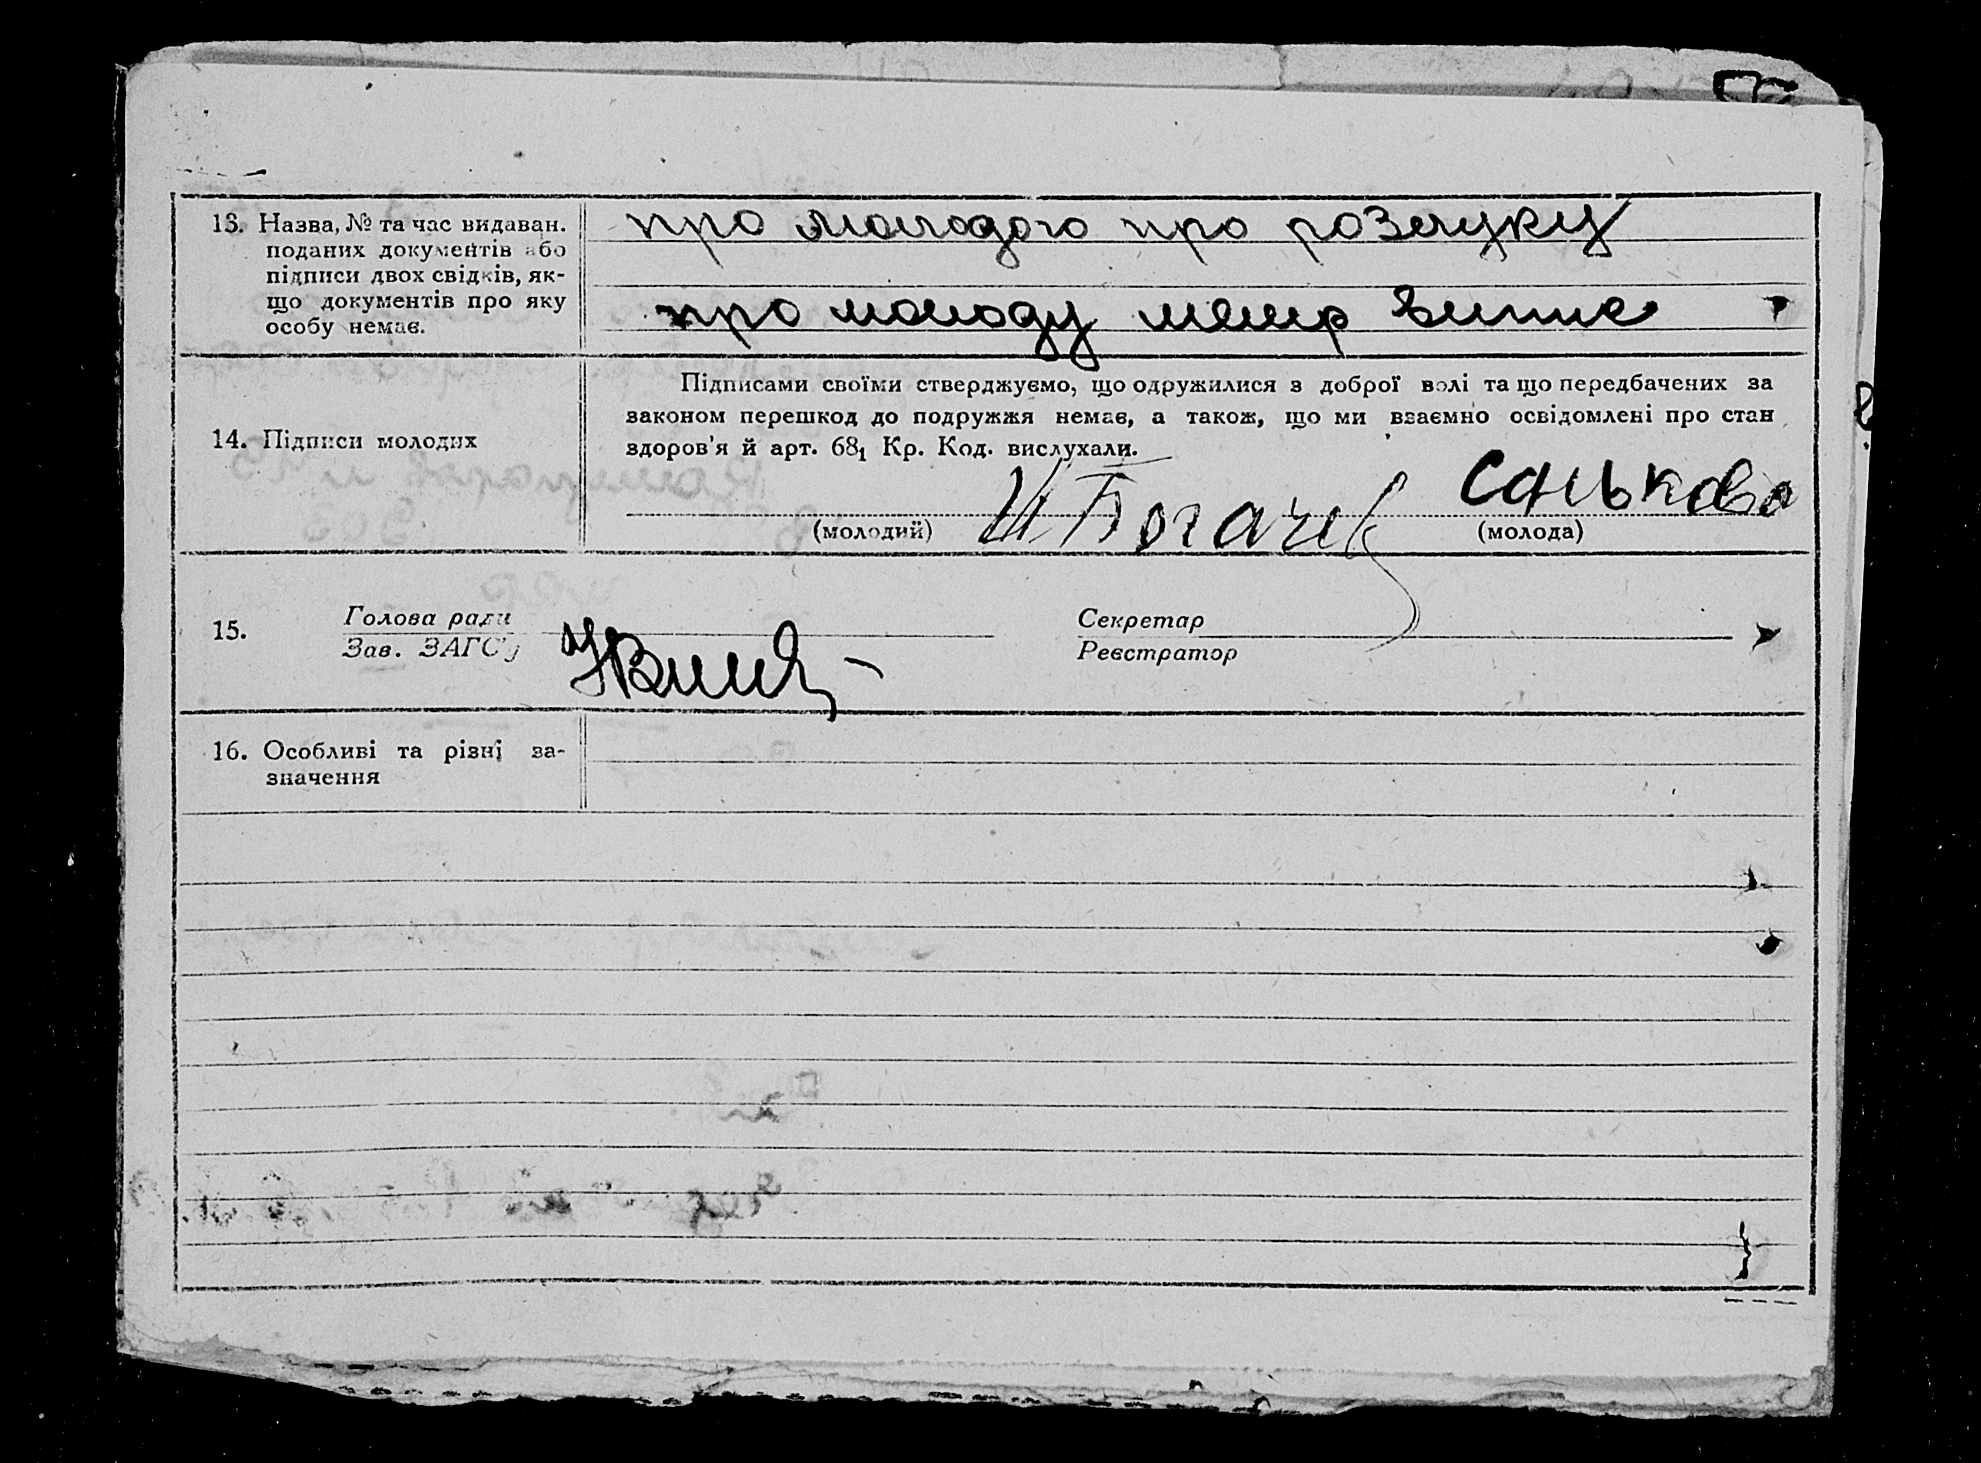 13. Назва, № та час видаван.
поданих документів або
підписи двох свідків, як-
що документів про яку
особу немає.
про молодого про розлуку
про молоду метр випис
14. Підписи молодих
Підписами своїми стверджуємо, що одружилися з доброї волі та що передбачених за
законом перешкод до подружжя немає, а також, що ми взаємно освідомлені про стан
здоров'я й арт. 68₁ Кр. Код. вислухали.
(молодий) И Богачев
Санькова
(молода)
15.
Голова ради
Зав. ЗАГС'у
Секретар
Реєстратор
16. Особливі та різні за-
значення